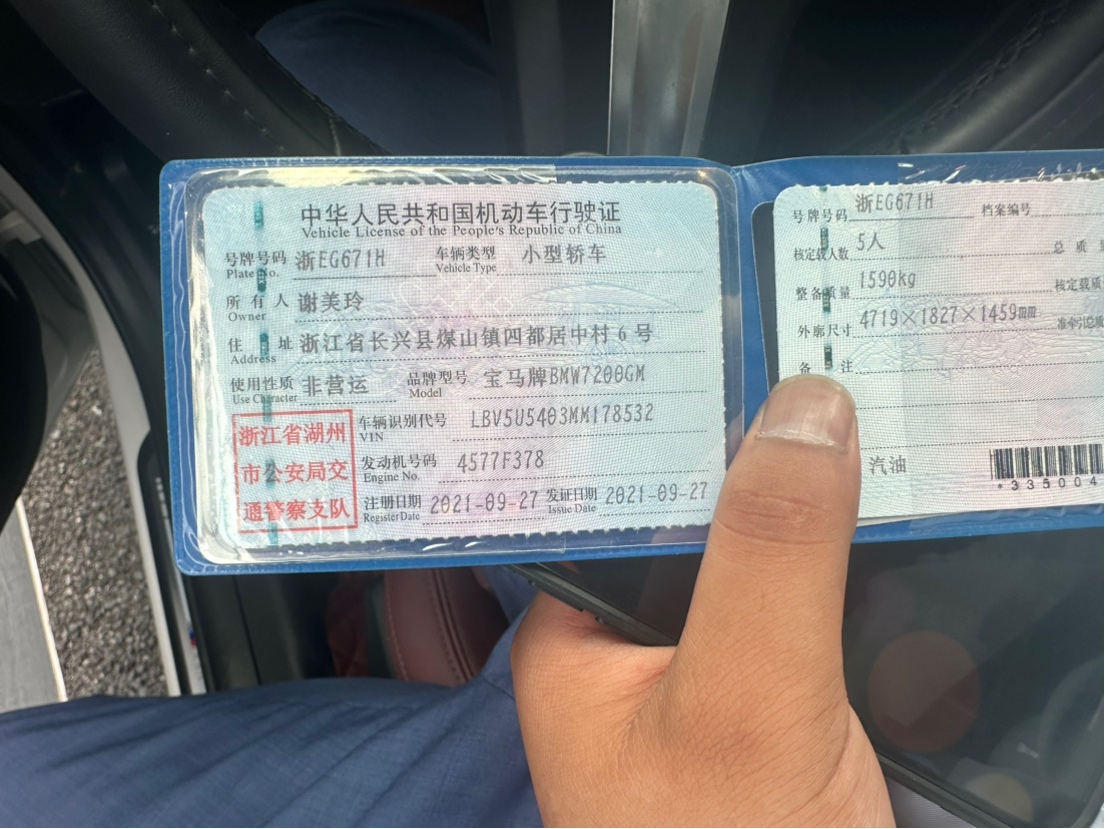 中华人民共和国机动车行驶证
Vehicle License of the People's Republic of China
号牌号码 浙EG671H 车辆类型 小型轿车
Plate No. Vehicle Type
所有人 谢美玲
Owner
住址 浙江省长兴县煤山镇四都居中村6号
Address
使用性质 非营运 品牌型号 宝马牌BMW7200GM
Use Character Model
浙江省湖州
市公安局交
通警察支队
车辆识别代号 LBV5U5403MM178532
VIN
发动机号码 4577F378
Engine No.
注册日期 2021-09-27 发证日期 2021-09-27
Register Date Issue Date
号牌号码 浙EG671H 档案编号
核定载人数 5人 总质量
整备质量 1590kg 核定载质
外廓尺寸 4719×1827×1459mm 准牵引总质
备注
汽油
*335004